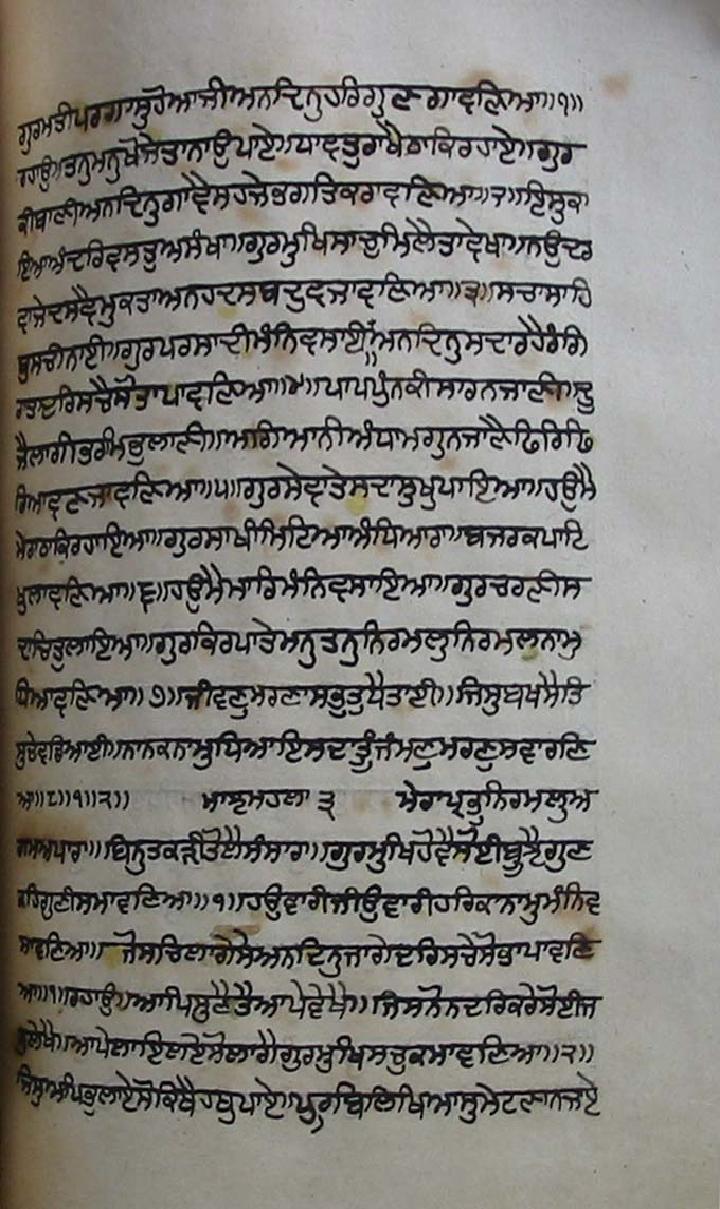 ਗੁਰਮਤੀਪਰਗਾਸੁਹੋਆਜੀਅਨਦਿਨੁਹਰਿਗੁਣਗਾਵਣਿਆ॥੧॥
ਰਹਾਉ॥ਤਨੁਮਨੁਖੋਜੇਤਾਨਾਉਪਾਏ॥ਧਾਵਤੁਰਾਖੈਠਾਕਿਰਹਾਏ॥ਗੁਰ
ਕੀਬਾਣੀਅਨਦਿਨੁਗਾਵੈਸਹਜੇਭਗਤਿਕਰਾਵਣਿਆ॥੨॥ਇਸੁਕਾ
ਇਆਅੰਦਰਿਵਸਤੁਅਸੰਖਾ॥ਗੁਰਮੁਖਿਸਾਚੁਮਿਲੈਤਾਵੇਖਾ॥ਨਉਦਰ
ਵਾਜੇਦਸਵੈਮੁਕਤਾਅਨਹਦਸਬਦੁਵਜਾਵਣਿਆ॥੩॥ਸਚਾਸਾਹਿ
ਬੁਸਚੀਨਾਈ॥ਗੁਰਪਰਸਾਦੀਮੰਨਿਵਸਾਈ॥ਅਨਦਿਨੁਸਦਾਰਹੈਰੰਗਿ
ਰਾਤਾਦਰਿਸਚੈਸੋਝੀਪਾਵਣਿਆ॥੪॥ਪਾਪਪੁੰਨਕੀਸਾਰਨਜਾਣੀ॥ਦੂ
ਜੈਲਾਗੀਭਰਮਿਭੁਲਾਣੀ॥ਅਗਿਆਨੀਅੰਧਾਮਗੁਨਜਾਣੈਫਿਰਿਫਿ
ਰਿਆਵਣਜਾਵਣਿਆ॥੫॥ਗੁਰਸੇਵਾਤੇਸਦਾਸੁਖੁਪਾਇਆ॥ਹਉਮੈ
ਮੇਰਾਠਾਕਿਰਹਾਇਆ॥ਗੁਰਸਾਖੀਮਿਟਿਆਅੰਧਿਆਰਾ॥ਬਜਰਕਪਾਟ
ਖੁਲਾਵਣਿਆ॥੬॥ਹਉਮੈਮਾਰਿਮੰਨਿਵਸਾਇਆ॥ਗੁਰਚਰਣੀਸ
ਦਾਚਿਤੁਲਾਇਆ॥ਗੁਰਕਿਰਪਾਤੇਮਨੁਤਨੁਨਿਰਮਲੁਨਿਰਮਲਨਾਮੁ
ਧਿਆਵਣਿਆ॥੭॥ਜੀਵਣੁਮਰਣਾਸਭੁਤੁਧੈਤਾਈ॥ਜਿਸੁਬਖਸੇਤਿ
ਸੁਦੇਵਡਿਆਈ॥ਨਾਨਕਨਾਮੁਧਿਆਇਸਦਾਤੂੰਜੰਮਣੁਮਰਣੁਸਵਾਰਣਿ
ਆ॥੮॥੧॥੨॥ ਮਾਝਮਹਲਾ ੩ ਮੇਰਾਪ੍ਰਭੁਨਿਰਮਲੁਅ
ਗਮਅਪਾਰਾ॥ਬਿਨੁਤਕੜੀਤੋਲੈਸੰਸਾਰਾ॥ਗੁਰਮੁਖਿਹੋਵੈਸੋਈਬੂਝੈਗੁਣ
ਕਹਿਗੁਣੀਸਮਾਵਣਿਆ॥੧॥ਹਉਵਾਰੀਜੀਉਵਾਰੀਹਰਿਕਾਨਾਮੁਮੰਨਿਵ
ਸਾਵਣਿਆ॥ ਜੋਸਚਿਲਾਗੇਸੇਅਨਦਿਨੁਜਾਗੇਦਰਿਸਚੈਸੋਭਾਪਾਵਣਿ
ਆ॥੧॥ਰਹਾਉ॥ਆਪਿਸੁਣੈਤੈਆਪੇਵੇਖੈ॥ਜਿਸਨੋਨਦਰਿਕਰੇਸੋਈਜ
ਨੁਲੇਖੈ॥ਆਪੇਲਾਇਲਏਸੋਲਾਗੈਗੁਰਮੁਖਿਸਚੁਕਮਾਵਣਿਆ॥੨॥
ਜਿਸੁਆਪਿਭੁਲਾਏਸੋਕਿਥੈਹਥੁਪਾਏ॥ਪੂਰਬਿਲਿਖਿਆਸੁਮੇਟਣਾਨਜਾਏ